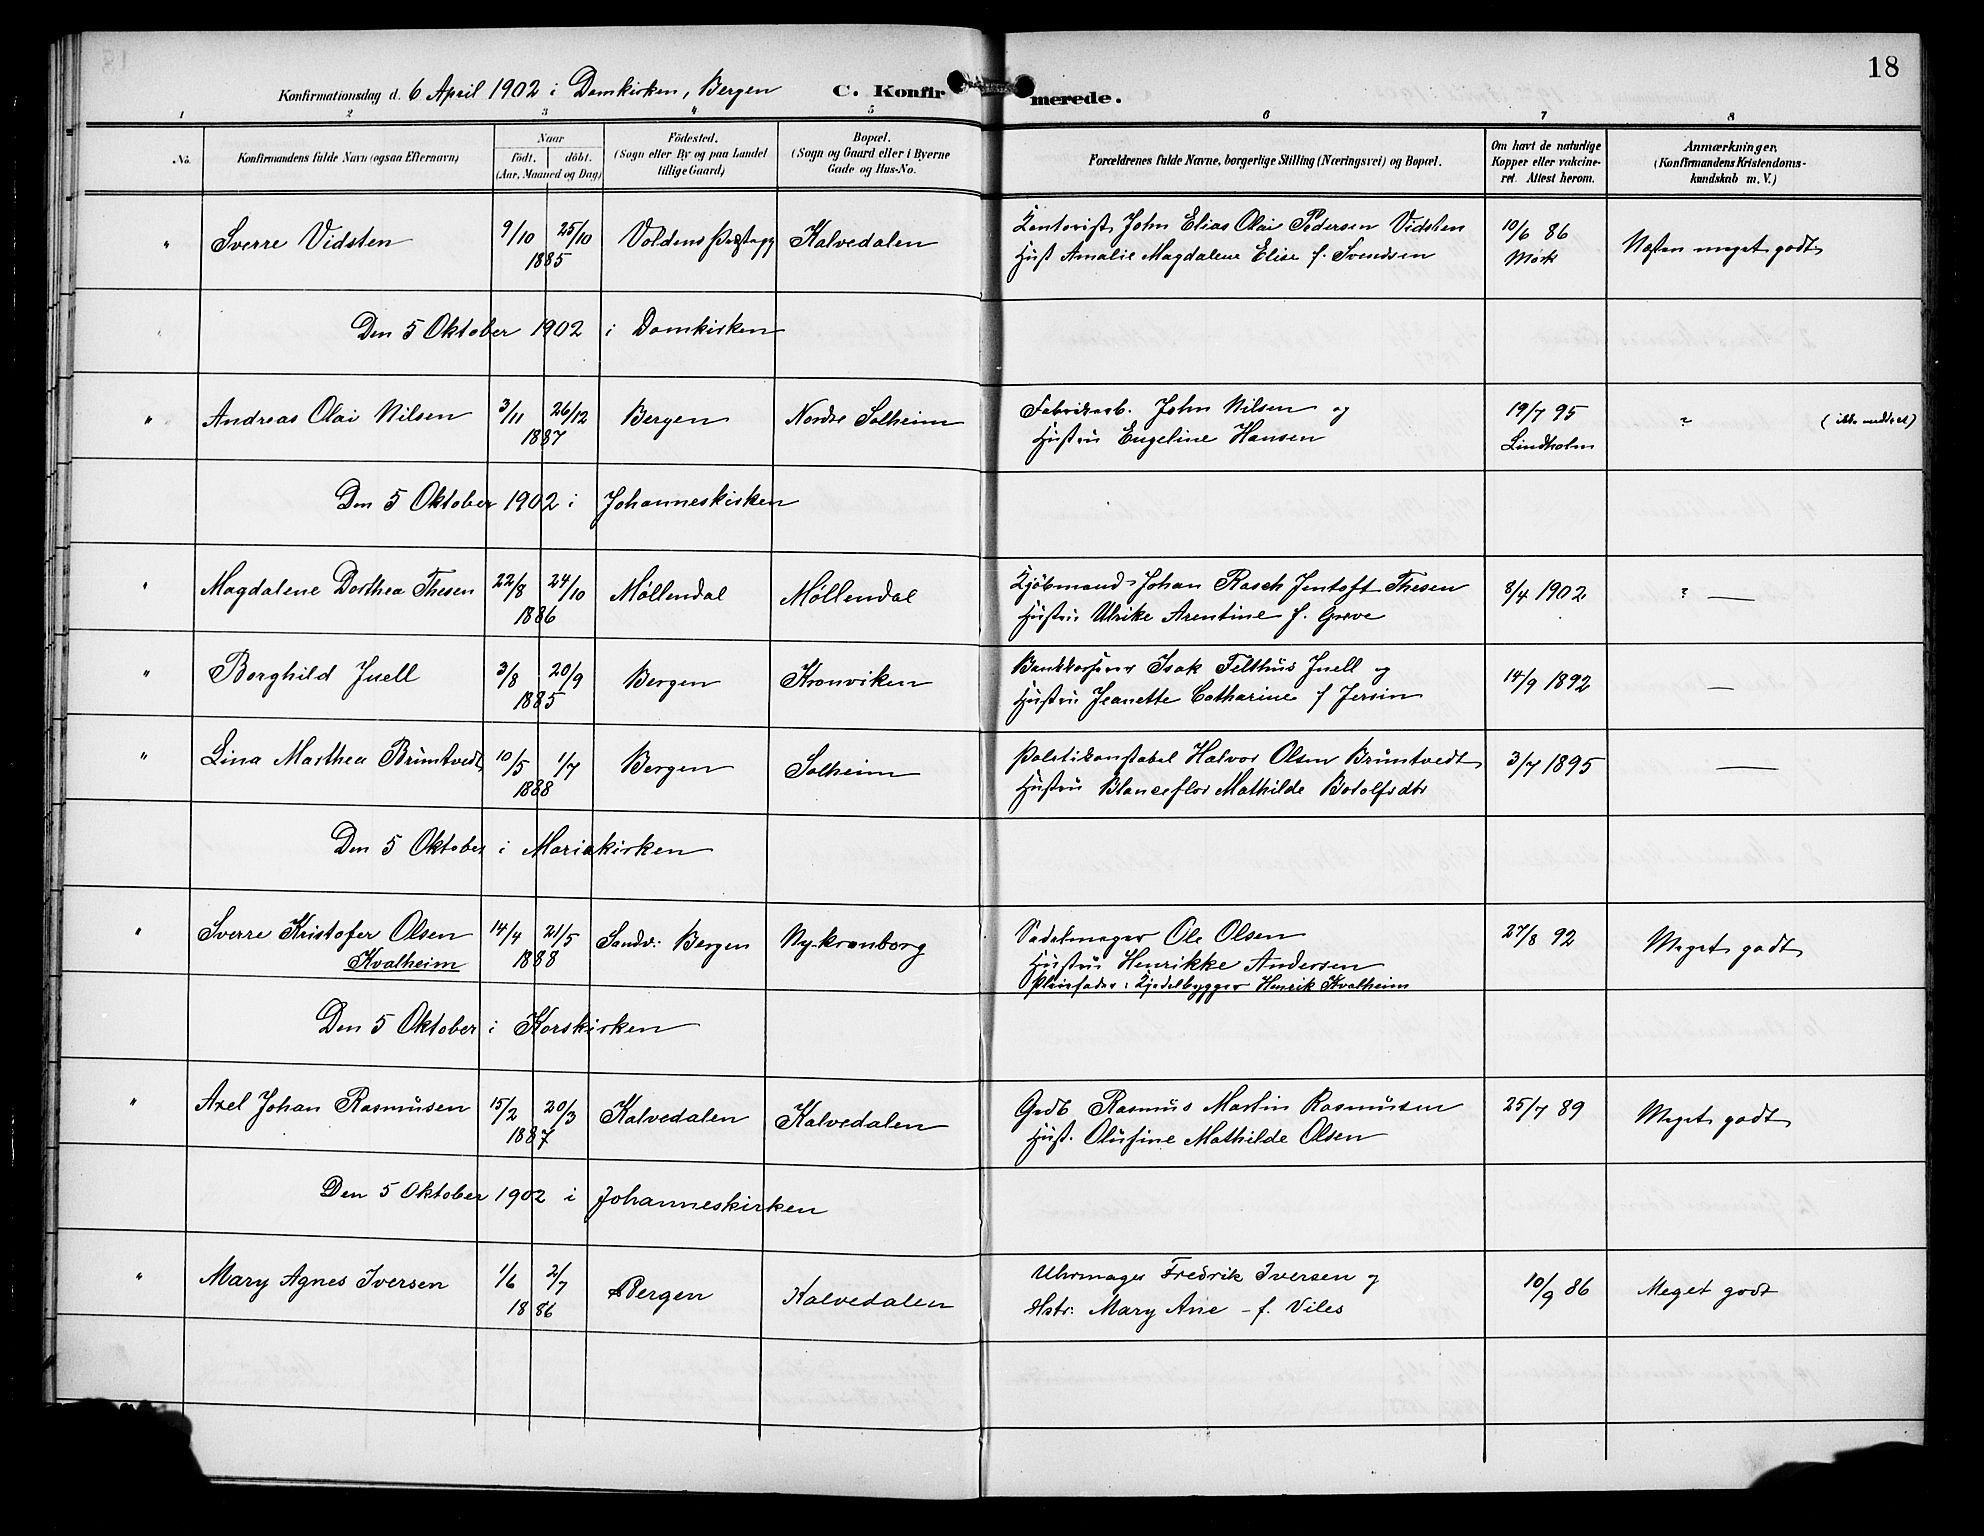 18
Konfirmationsdag d. 6 April 1902 i Domkirken, Bergen C. Konfirmerede.
1 2 3 4 5 6 7 8
No.
Konfirmandens fulde Navn (ogsaa Efternavn)
Naar
födt. döbt.
(Aar, Maaned og Dag)
Födested.
(Sogn eller By og paa Landet
tillige Gaard)
Bopæl.
(Sogn og Gaard eller i Byerne
Gade og Hus-No.
Forældrenes fulde Navne, borgerlige Stilling (Næringsvei) og Bopæl.
Om havt de naturlige
Kopper eller vakcine-
ret. Attest herom.
Anmærkninger,
(Konfirmandens Kristendoms-
kundskab m. V.)
" Sverre Vidsten 9/10 25/10 1885 Voldens Kalvedalen
Kontorist John Elias Olai Pedersen Vidsten
Hust Amalie Magdalene Elise f. Svendsen
10/6 86
Mörk
Næsten meget godt
Den 5 Oktober 1902 i Domkirken
" Andreas Olai Nilsen 3/11 26/12 1887 Bergen Nordre Solheim
Fabrikarb. John Nilsen og
Hustru Engeline Hansen
19/7 95
Lindholm
? (ikke meddelt)
Den 5 Oktober 1902 i Johanneskirken
" Magdalene Dorthea Thesen 22/8 24/10 1886 Møllendal Møllendal
Kjöbmand Johan Rasch Jentoft Thesen
Hustru Ulrike Arentine f. Greve
8/4 1902
? —
" Borghild Juell 3/8 20/9 1885 Bergen Kronviken
Bankkasserer Isak Felthus Juell og
Hustru Jeanette Catharine f Jersin
14/9 1892
—
" Lina Marthea Brüntvedt 10/5 1/7 1888 Bergen Solheim
Politikonstabel Halvor Olsen Brüntvedt
Hustru Blanceflor Mathilde Botolfsdtr
3/7 1895
—
Den 5 Oktober i Mariakirken
" Sverre Kristofer Olsen 14/4 21/5 1888 Sandv: Bergen Ny-kronborg
Kvalheim
Sadelmager Ole Olsen
Hustru Henrikke Andersen
Pleiefader: Kjedelbygger Henrik Kvalheim
27/8 92
Meget godt
Den 5 Oktober i Korskirken
" Axel Johan Rasmüsen 15/2 20/3 1887 Kalvedalen Kalvedalen
Grdb Rasmus Martin Rasmüsen
Hust. Olüfine Mathilde Olsen
25/7 89
Meget godt
Den 5 Oktober 1902 i Johanneskirken
" Mary Agnes Iversen 1/6 2/7 1886 Bergen Kalvedalen
Uhrmager Fredrik Iversen og
Hstr: Mary Ane – f. Viles
10/9 86
Meget godt